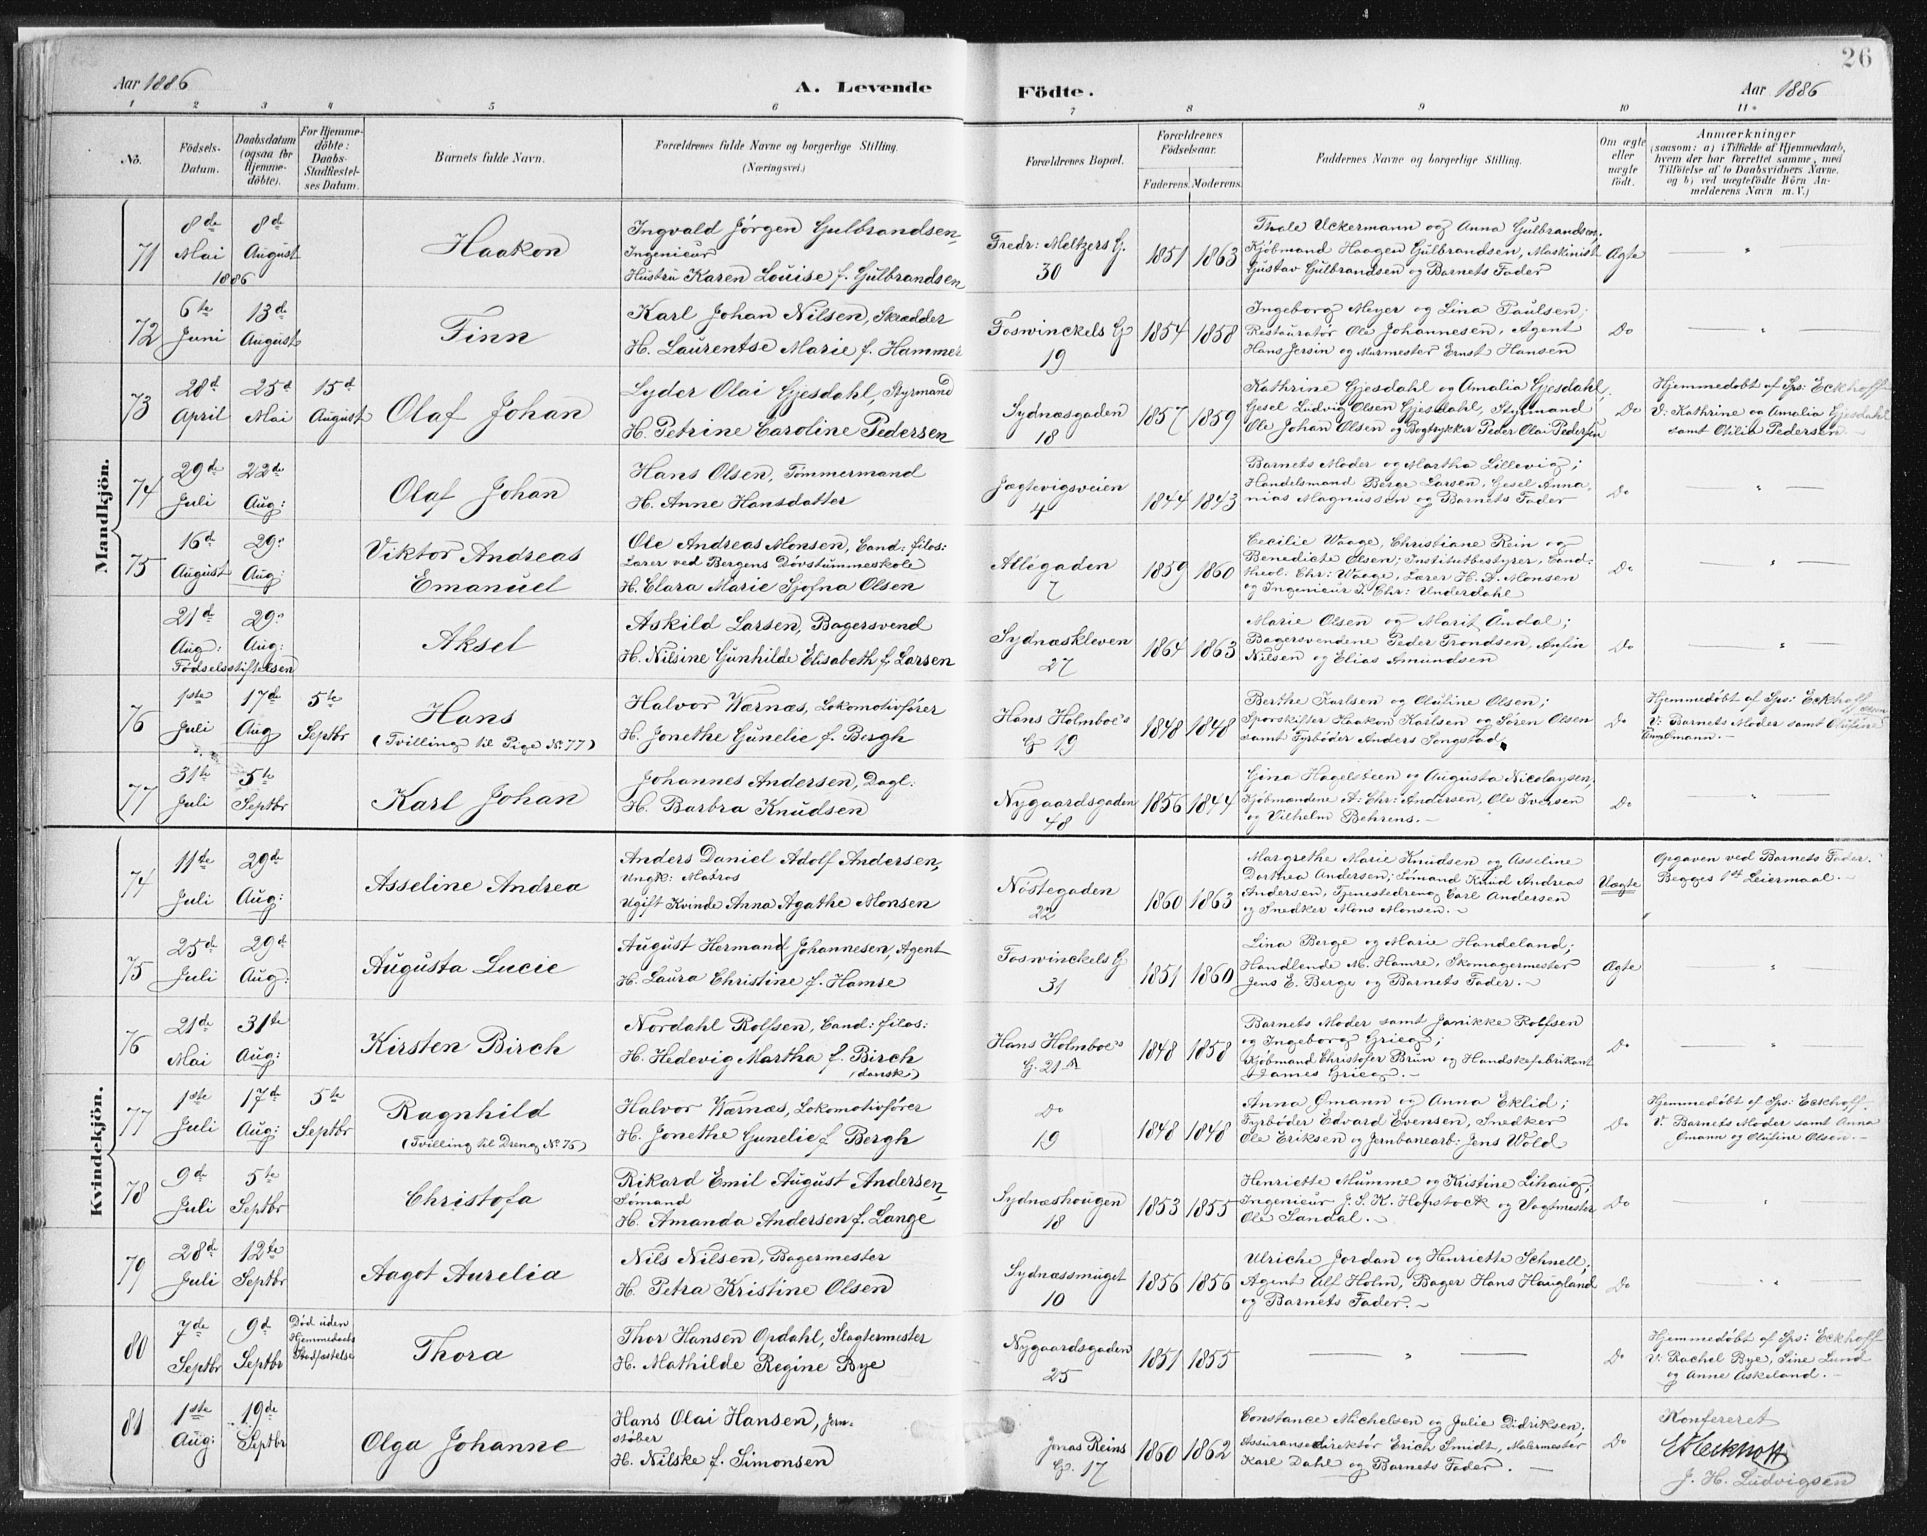 26
Aar 1886
A. Levende
Födte.
Aar 1886
1 2 3 4 5 6 7 8 9 10 11
No.
Födsels-Datum.
Daabsdatum (ogsaa for Hjemmedöbte).
For Hjemmedöbte: Daabs-Stadfæstelses Datum.
Barnets fulde Navn.
Forældrenes fulde Navne og borgerlige Stilling.
(Næringsvei.)
Forældrenes Bopæl.
Forældrenes Födselsaar.
Faderens. Moderens.
Faddernes Navne og borgerlige Stilling.
Om ægte eller uægte födt.
Anmærkninger
(saasom: a) i Tilfælde af Hjemmedaab, hvem der har forrettet samme, med Tilföielse af to Daabsvidners Navne, og b) ved uægtefödte Börn Anmelderens Navn m. V.)
Mandkjön.
71
8de Mai 1886
8de August
Haakon
Ingvald Jörgen Gulbrandsen,
Ingenieur
Hustru Karen Louise f. Gulbrandsen
Fredr: Meltzers G. 30
1851 1863
Thale Uckermann og Anna Gulbrandsen;
Kjöbmand Haagen Gulbrandsen, Maskinist
Gustav Gulbrandsen og Barnets Fader
Ægte
72
6te Juni
13d August
Finn
Karl Johan Nilsen, Skrædder
H. Laurentse Marie f. Hammer
Foswinckels G 19
1854 1858
Ingeborg Meyer og Lina Paulsen;
Restauratör Ole Johannesen, Agent
Hans Jersin og Murmester Ernst Hansen
Do
73
28d April
25d Mai
15d August
Olaf Johan
Lyder Olai Gjesdahl, Styrmand
H. Petrine Caroline Pedersen
Sydnæsgaden 18
1857 1859
Kathrine Gjesdahl og Amalia Gjesdahl,
Gesel Ludvig Olsen Gjesdahl, Styrmand
Ole Johan Olsen og Bogtrykker Peder Olai Pedersen
Do
Hjemmedöbt af Sps: Eckhoff
V: Kathrine og Amalia Gjesdahl
samt Otilia Pedersen.-
74
29de Juli
22de Aug:
Olaf Johan
Hans Olsen, Tömmermand
H. Anne Hansdatter
Jægtevigsveien 4
1844 1843
Barnets Moder og Martha Lillevig;
Handelsmand Berge Larsen, Gesel Anna-
nias Magnussen og Barnets Fader
Do
75
16d August
29de Aug:
Viktor Andreas
Emanuel
Ole Andreas Monsen, Cand: filos:
Lærer ved Bergens Dövstummeskole
H. Clara Marie Sjofna Olsen
Allégaden 7
1859 1860
Cecilie Waage, Christiane Rein og
Benedicte Olsen; Institutbestyrer, Cand.
theol. Chr: Waage, Lærer H. A. Monsen
og Ingenieur J. Chr: Underdahl
Do
21d Aug:
29de Aug:
Födselsstiftelsen
Aksel
Askild Larsen, Bagersvend
H. Nilsine Gunhilde Elisabeth f. Larsen
Sydnæskleven 27
1864 1863
Marie Olsen og Marit Åndal;
Bagersvendene Peder Trondsen, Anfin
Nilsen og Elias Amundsen
Do
76
1ste Juli
17de Aug
5te Septbr
Hans
(Tvilling til Pige No. 77)
Halvor Wærnæs, Lokomotivförer
H. Jonethe Gunelie f. Bergh
Hans Holmboe's G 19
1848 1848
Berthe Karlsen og Olufine Olsen;
Sporskifter Haakon Karlsen og Sören Olsen
samt Fyrböder Anders Songstad
Do
Hjemmedöbt af Sps: Eckhoff
V: Barnets Moder samt Olufine Olsen
77
31te Juli
5te Septbr
Karl Johan
Johannes Andersen, Dagl:
H. Barbra Knudsen
Nygaardsgaden 48
1856 1844
Gina Hagelsteen og Augusta Nicolaysen;
Kjöbmændene A: Chr: Andersen, Ole Iversen
og Vilhelm Behrens.-
Do
Kvindekjön.
74
11te Juli
29de Aug:
Asseline Andrea
Anders Daniel Adolf Andersen,
Ungk: Matros
Ugift Kvinde Anna Agathe Monsen
Nöstegaden 22
1860 1863
Margrethe Marie Knudsen og Asseline
Dorthea Andersen; Sömand Knud Andreas
Andersen, Tjenestedreng Carl Andersen
og Snedker Mons Monsen.-
Uægte
Opgaven ved Barnets Fader.
Begges 1ste Leiermaal.-
75
25d Juli
29d Aug:
Augusta Lucie
August Herman Johannesen, Agent
H. Laura Christine f. Hamre
Foswinckels G 31
1851 1860
Lina Berge og Marie Handeland;
Handlende M. Hamre, Skomagermester
Jens E. Berge og Barnets Fader.-
Ægte
76
21de Mai
31te Aug:
Kirsten Birch
Nordahl Rolfsen, Cand: filos:
H. Hedevig Martha f. Birch
(dansk)
Hans Holmboe's G. 21 A
1848 1858
Barnets Moder samt Janikke Rolfsen
og Ingeborg Grieg;
Kjöbmand Christofer Brun og Handskefabrikant
James Grieg.-
Do
77
1ste Juli
17de Aug:
5te Septbr
Ragnhild
(Tvilling til Dreng No. 75)
Halvor Wærnæs, Lokomotivförer
H. Jonethe Gunelie f. Bergh
Do 19
1848 1848
Anna Ømann og Anna Eklid;
Fyrböder Edvard Evensen, Snedker
Ole Eriksen og Jernbanearb: Jens Wold
Do
Hjemmedöbt af Sps: Eckhoff
V: Barnets Moder samt Anna
Ømann og Olufine Olsen.-
78
9d Juli
5te Septbr
Christofa
Rikard Emil August Andersen,
Sömand
H. Amanda Andersen f. Lange
Sydnæshougen 18
1853 1855
Henriette Mumme og Kristine Lihaug;
Ingeniör J. S. K. Hopstock og Vagtmester
Ole Sandal.-
Do
79
28d Juli
12te Septbr
Aagot Aurelia
Nils Nilsen, Bagermester
H. Petra Kristine Olsen
Sydnæssmuget 10
1856 1856
Ulriche Jordan og Henriette Schnell;
Agent Alf Holm, Bager Hans Haugland
og Barnets Fader.-
Do
80
7de Septbr
9d Septbr
Död uden
Hjemmedaabs
Stadfæstelse
Thora
Thor Hansen Opdahl, Slagtermester
H. Mathilde Regine Bye
Nygaardsgaden 25
1851 1855
Do
Hjemmedöbt af Sps: Eckhoff
V: Rachel Bye, Sine Lund
og Anne Askeland.-
81
1ste Aug:
19de Septbr
Olga Johanne
Hans Olai Hansen, Jern-
stöber
H. Nilske f. Simonsen
Jonas Reins G. 17
1860 1862
Constance Michelsen og Julie Didriksen;
Assuransedirektör Erich Smidt, Malermester
Karl Dahl og Barnets Fader.-
Do
Konfereret
Eckhoff
J. H. Ludvigsen